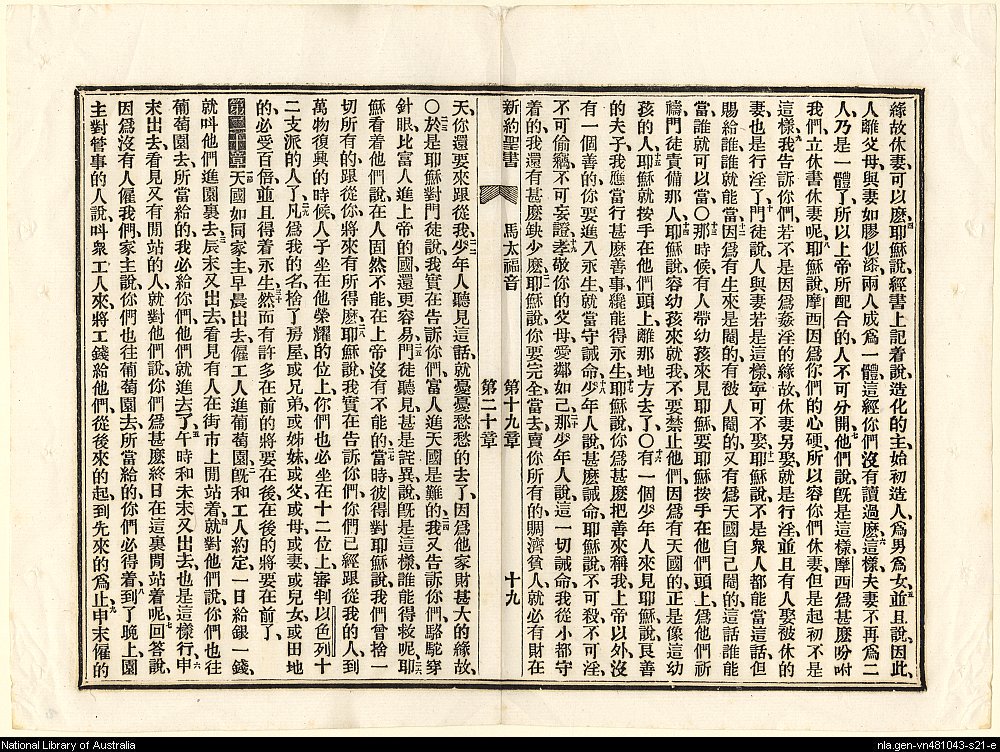 緣故休妻、可以麽、耶穌說、經書上記着說、造化的主、始初造人、爲男爲女、並且說、因此
人離父母、與妻如膠似漆、兩人成爲一體、這經你們沒有讀過麽、這樣、夫妻不再爲二
人、乃是一體了、所以上帝所配合的、人不可分開、他們說、旣是這樣、摩西爲甚麽吩咐
我們立休書休妻呢、耶穌說、摩西因爲你們的心硬、所以容你們休妻、但是起初不是
這樣、我告訴你們、若不是因爲姦淫的緣故、休妻另娶、就是行淫、並且有人娶被休的
妻、也是行淫了、門徒說、人與妻若是這樣、寧可不娶、耶穌說、不是衆人都能當這話、但
賜給誰、誰就能當、因爲有生來是閹的、有被人閹的、又有爲天國自己閹的、這話誰能
當、誰就可以當、〇那時候有人帶幼孩來見耶穌、要耶穌按手在他們頭上、爲他們祈
禱、門徒責備那人、耶穌說、容幼孩來就我、不要禁止他們、因爲有天國的、正是像這幼
孩的人、耶穌就按手在他們頭上、離那地方去了、〇有一個少年人來見耶穌說、良善
的夫子、我應當行甚麽善事、纔能得永生、耶穌說、你爲甚麽把善來稱我、上帝以外、沒
有一個善的、你要進入永生、就當守誡命、少年人說、甚麽誡命、耶穌說、不可殺、不可淫、
不可偷竊、不可妄證、孝敬你的父母、愛鄰如己、那少年人說、這一切誡命、我從小都守
着的、我還有甚麽缺少麽、耶穌說、你要完全、當去賣你所有的、賙濟貧人、就必有財在
新約聖書 馬太福音 第十九章 第二十章 十九
天、你還要來跟從我、少年人聽見這話、就憂憂愁愁的去了、因爲他家財甚大的緣故、
〇於是耶穌對門徒說、我實在告訴你們、富人進天國是難的、我又告訴你們、駱駝穿
針眼、比富人進上帝的國、還更容易、門徒聽見、甚是詫異說、旣是這樣、誰能得救呢、耶
穌看着他們說、在人固然不能、在上帝沒有不能的、當時彼得對耶穌說、我們曾捨一
切所有的、跟從你、將來有所得麽、耶穌說、我實在告訴你們、你們已經跟從我的人、到
萬物復興的時候、人子坐在他榮耀的位上、你們也必坐在十二位上、審判以色列十
二支派的人了、凡爲我的名、捨了房屋、或兄弟、或姊妹、或父、或母、或妻、或兒女、或田地
的、必受百倍、並且得着永生、然而有許多在前的、將要在後、在後的、將要在前了、
第二十章 天國如同家主、早晨出去、僱工人進葡萄園、旣和工人約定、一日給銀一錢、
就呌他們進園裏去、辰末又出去、看見有人在街市上閒站着、就對他們說、你們也往
葡萄園去、所當給的、我必給你們、他們就進去了、午時和未末又出去、也是這樣行、申
末出去、看見又有閒站的人、就對他們說、你們爲甚麽終日在這裏閒站着呢、回答說、
因爲沒有人僱我們、家主說、你們也往葡萄園去、所當給的、你們必得着、到了晚上、園
主對管事的人說、呌衆工人來、將工錢給他們、從後來的起、到先來的爲止、申末僱的